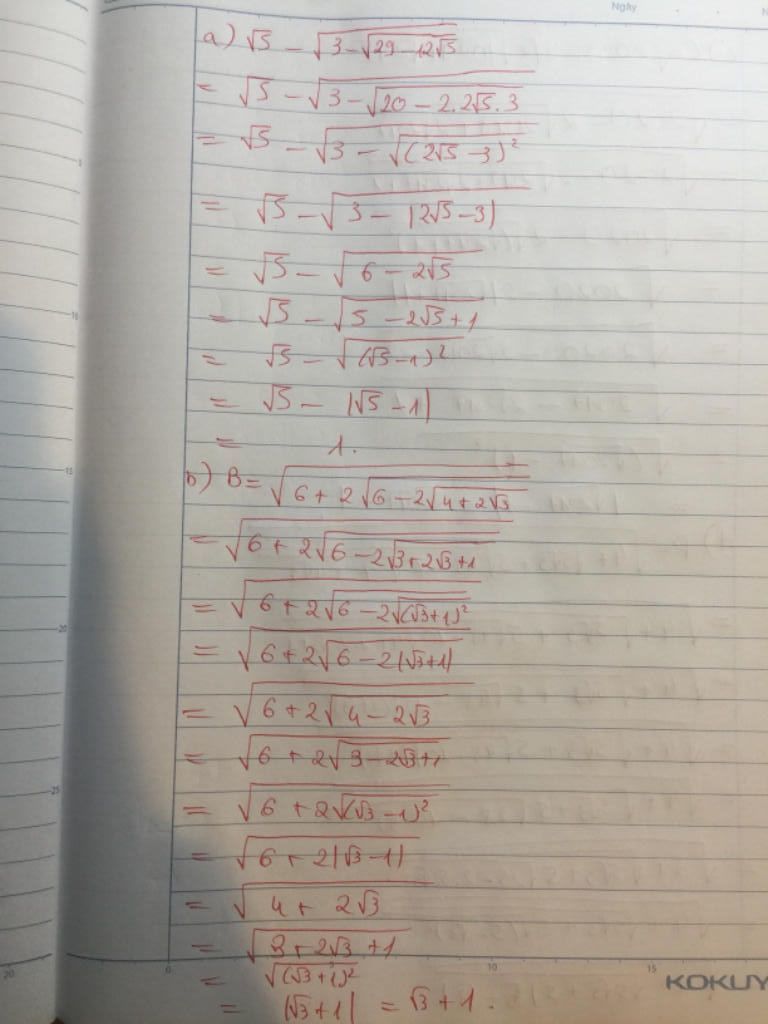 Ngày
a) √5 - √(3 - √(29 - 12√5))
= √5 - √(3 - √(20 - 2.2√5.3))
= √5 - √(3 - √((2√5 - 3)²))
= √5 - √(3 - |2√5 - 3|)
= √5 - √(6 - 2√5)
= √5 - √(5 - 2√5 + 1)
= √5 - √((√5 - 1)²)
= √5 - |√5 - 1|
= 1.
b) B = √(6 + 2√(6 - 2√(4 + 2√3)))
= √(6 + 2√(6 - 2√(3 + 2√3 + 1)))
= √(6 + 2√(6 - 2√((√3 + 1)²)))
= √(6 + 2√(6 - 2|√3 + 1|))
= √(6 + 2√(4 - 2√3))
= √(6 + 2√(3 - 2√3 + 1))
= √(6 + 2√((√3 - 1)²))
= √(6 + 2|√3 - 1|)
= √(4 + 2√3)
= √(3 + 2√3 + 1)
= √((√3 + 1)²)
= |√3 + 1| = √3 + 1.
KOKUY